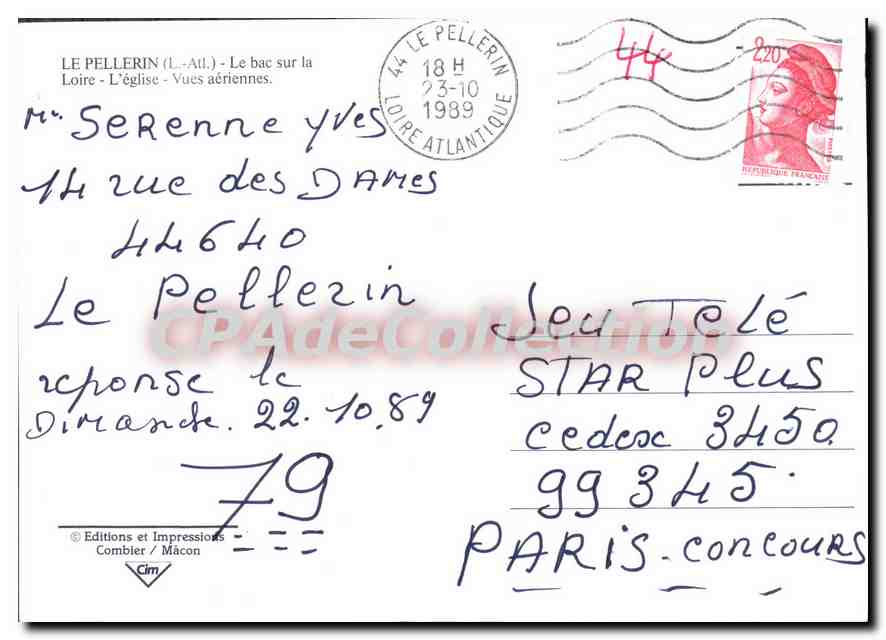 LE PELLERIN (L.-Atl.) - Le bac sur la
Loire - L'église - Vues aériennes.
44 LE PELLERIN
18 H
23-10
1989
LOIRE ATLANTIQUE
44
2,20
POSTES
REPUBLIQUE FRANÇAISE
Mr Serenne Yves
14 rue des DAMes
44640
Le Pellerin
reponse le
Dimanche. 22. 10.89
79
CPAdeCollection
Jeu Telé
STAR Plus
cedex 3450
99345.
PARIS-concours
© Editions et Impressions
Combier / Mâcon
Cim